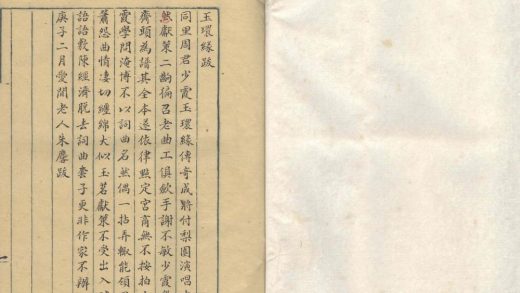 玉環緣跋
同里周君少霞玉環緣傳奇成將付梨園演唱
然獻策二齣徧召老曲工俱歛手謝不敏少霞
齊頭為譜其全本遂依律點定宮商無不按拍
霞學問淹博不以詞曲名然偶一拈弄輙能領
簫怨曲情凄切纏綿大似玉茗獻策不受出入
語語教陳經濟脫去詞曲套子更非作家不辦
庚子二月愛閒老人朱麐跋